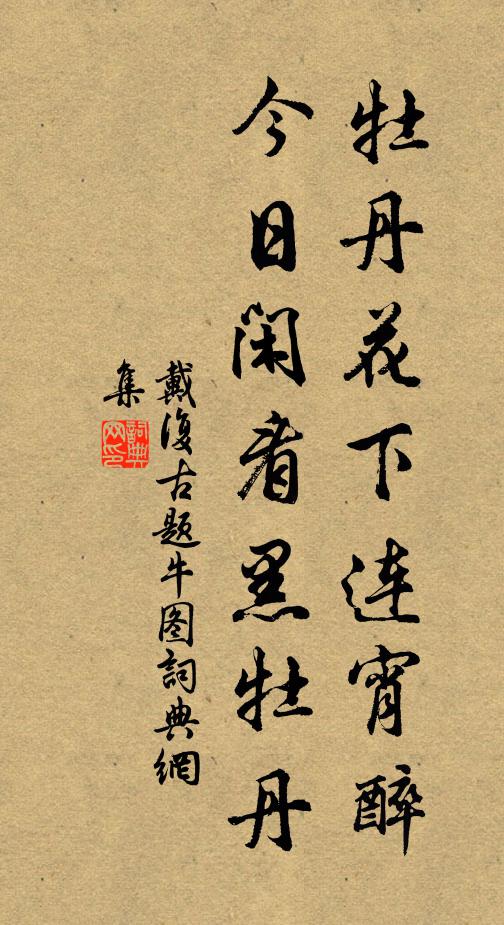 牡丹花下连宵醉
今日闲看黑牡丹
戴復古题牛图詞典網
集
詞典
网印